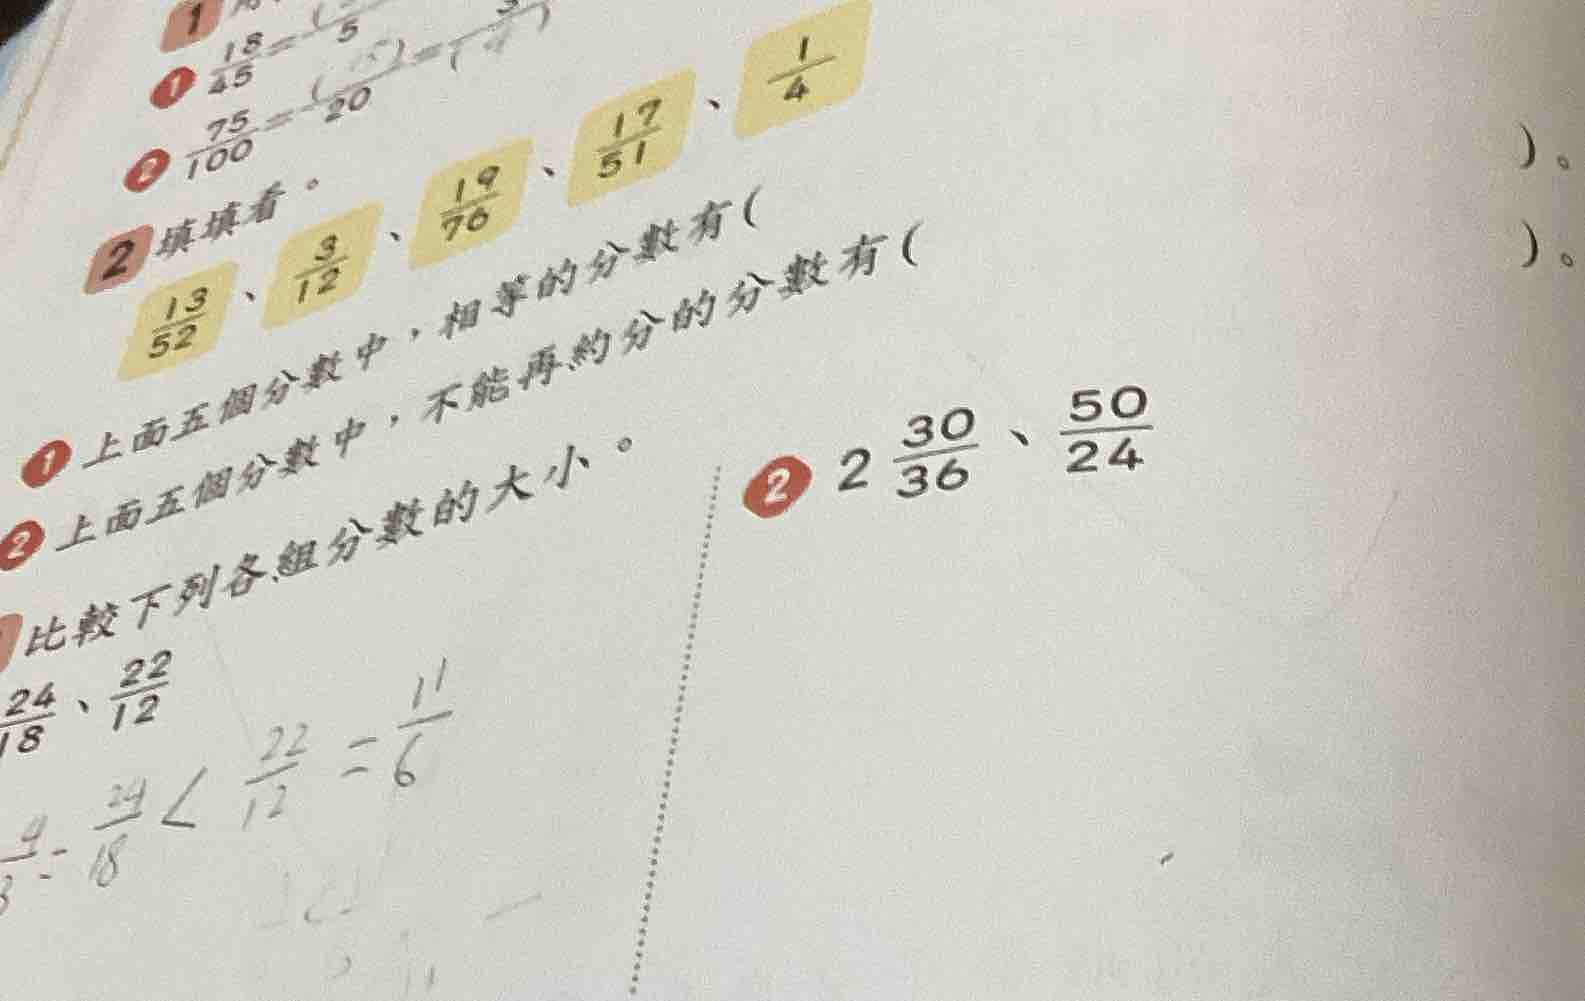 1
❶ 18/45 = ( )/5
❷ 75/100 = (15)/20 = 3/(4)
2 填填看。
13/52、3/12、19/76、17/51、1/4
❶ 上面五個分數中,相等的分數有( )。
❷ 上面五個分數中,不能再約分的分數有( )。
比較下列各組分數的大小。
24/18、22/12
❷ 2 30/36、50/24
4/3 = 24/18 < 22/12 = 11/6